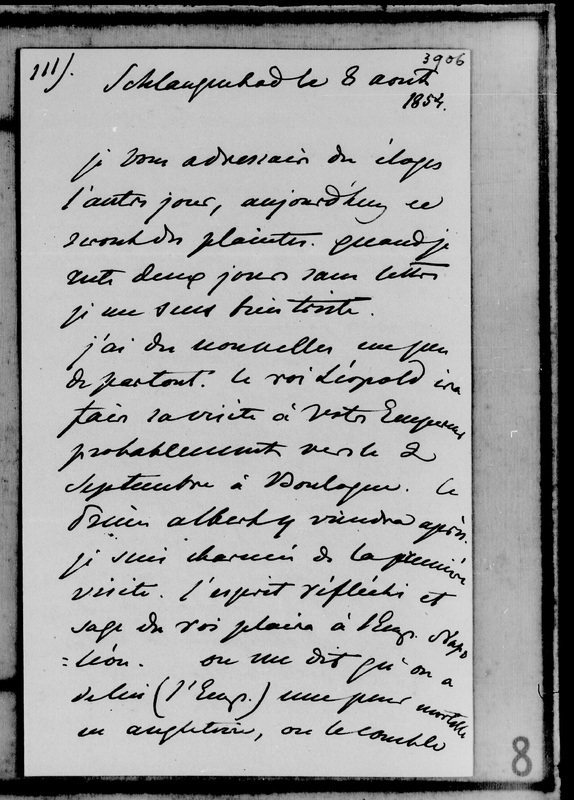 3906
111).
Schlangenbad le 8 aout
1854.
je vous adressais des éloges
l'autre jour, aujourd'huy ce
seront des plaintes. quand je
reste deux jours sans lettres
je me sens bien triste.
j'ai des nouvelles un peu
de partout. le roi Léopold ira
faire sa visite à votre Empereur
probablement vers le 2
septembre à Boulogne. le
Prince albert y viendra après.
je suis charmée de la première
visite. l'esprit réfléchi et
sage du roi plaira à l'Emp. Napo
=léon. on me dit qu'on a
de lui (l'Emp.) une peur mortelle
en angleterre, on le comble
8